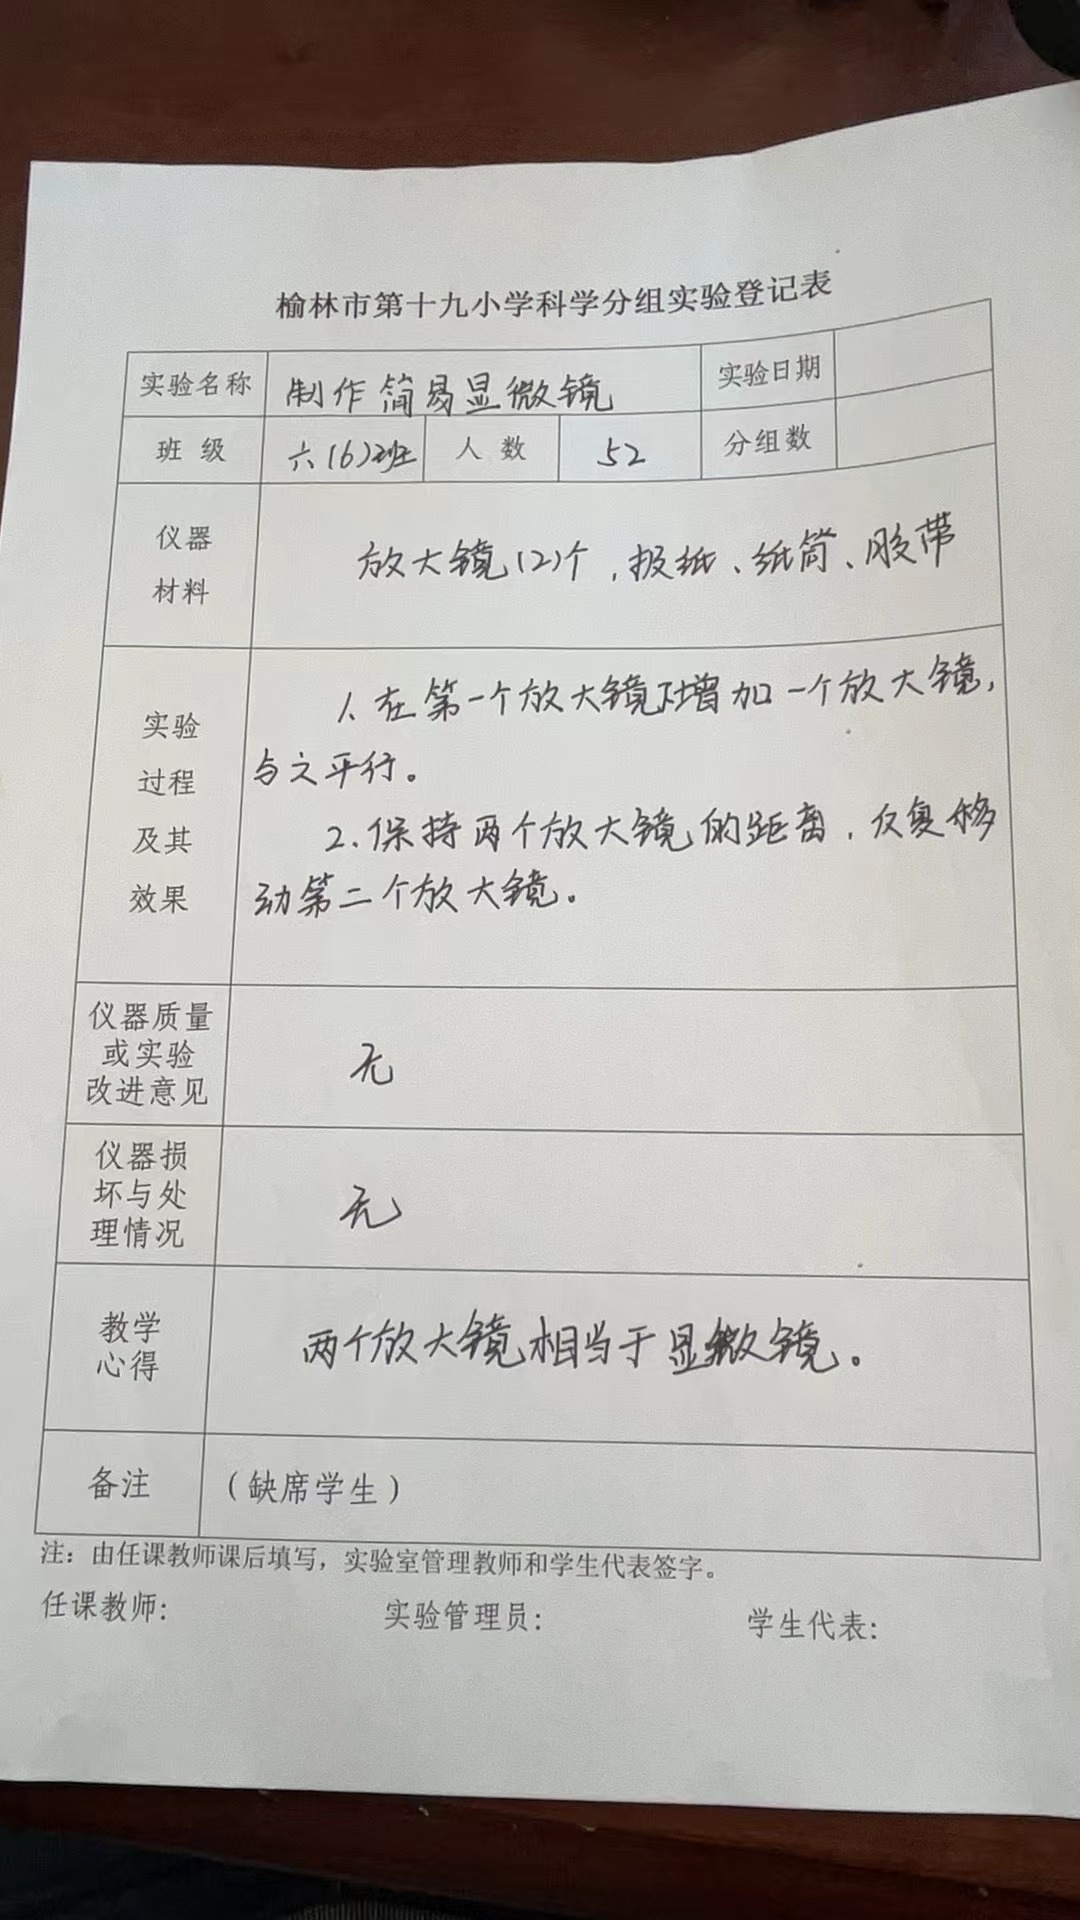 榆林市第十九小学科学分组实验登记表
实验名称 制作简易显微镜 实验日期
班级 六(6)班 人数 52 分组数
仪器
材料
放大镜(2)个，报纸、纸筒、胶带
实验
过程
及其
效果
1、在第一个放大镜下增加一个放大镜，
与之平行。
2.保持两个放大镜的距离，反复移
动第二个放大镜。
仪器质量
或实验
改进意见
无
仪器损
坏与处
理情况
无
教学
心得
两个放大镜相当于显微镜。
备注 （缺席学生）
注：由任课教师课后填写，实验室管理教师和学生代表签字。
任课教师: 实验管理员: 学生代表: